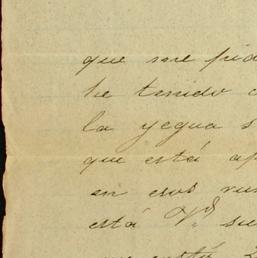 que me pid
he tenido
la yegua s
que está ap
en esos rum
está Vd. su